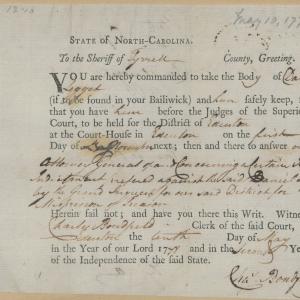 May 10, 177
STATE OF NORTH-CAROLINA.
To the Sheriff of Tyrrell County, Greeting.
YOU are hereby commanded to take the Body of
Legget
(if to be found in your Bailiwick) and him safely keep,
that you have him before the Judges of the Superior
Court, to be held for the District of Edenton
at the Court-House in Edenton on the first
Day of November next; then and there to answer
Attorney General of and Concerning a certain
Indictment against the said Daniel
by the Grand Jurors for our said District for
Misprision of Treason
Herein fail not; and have you there this Writ. Witness
Charles Bondfield Clerk of the said Court,
Edenton the tenth Day of May
in the Year of our Lord 177 and in the Second Ye
of the Independence of the said State.
Cha. Bondf